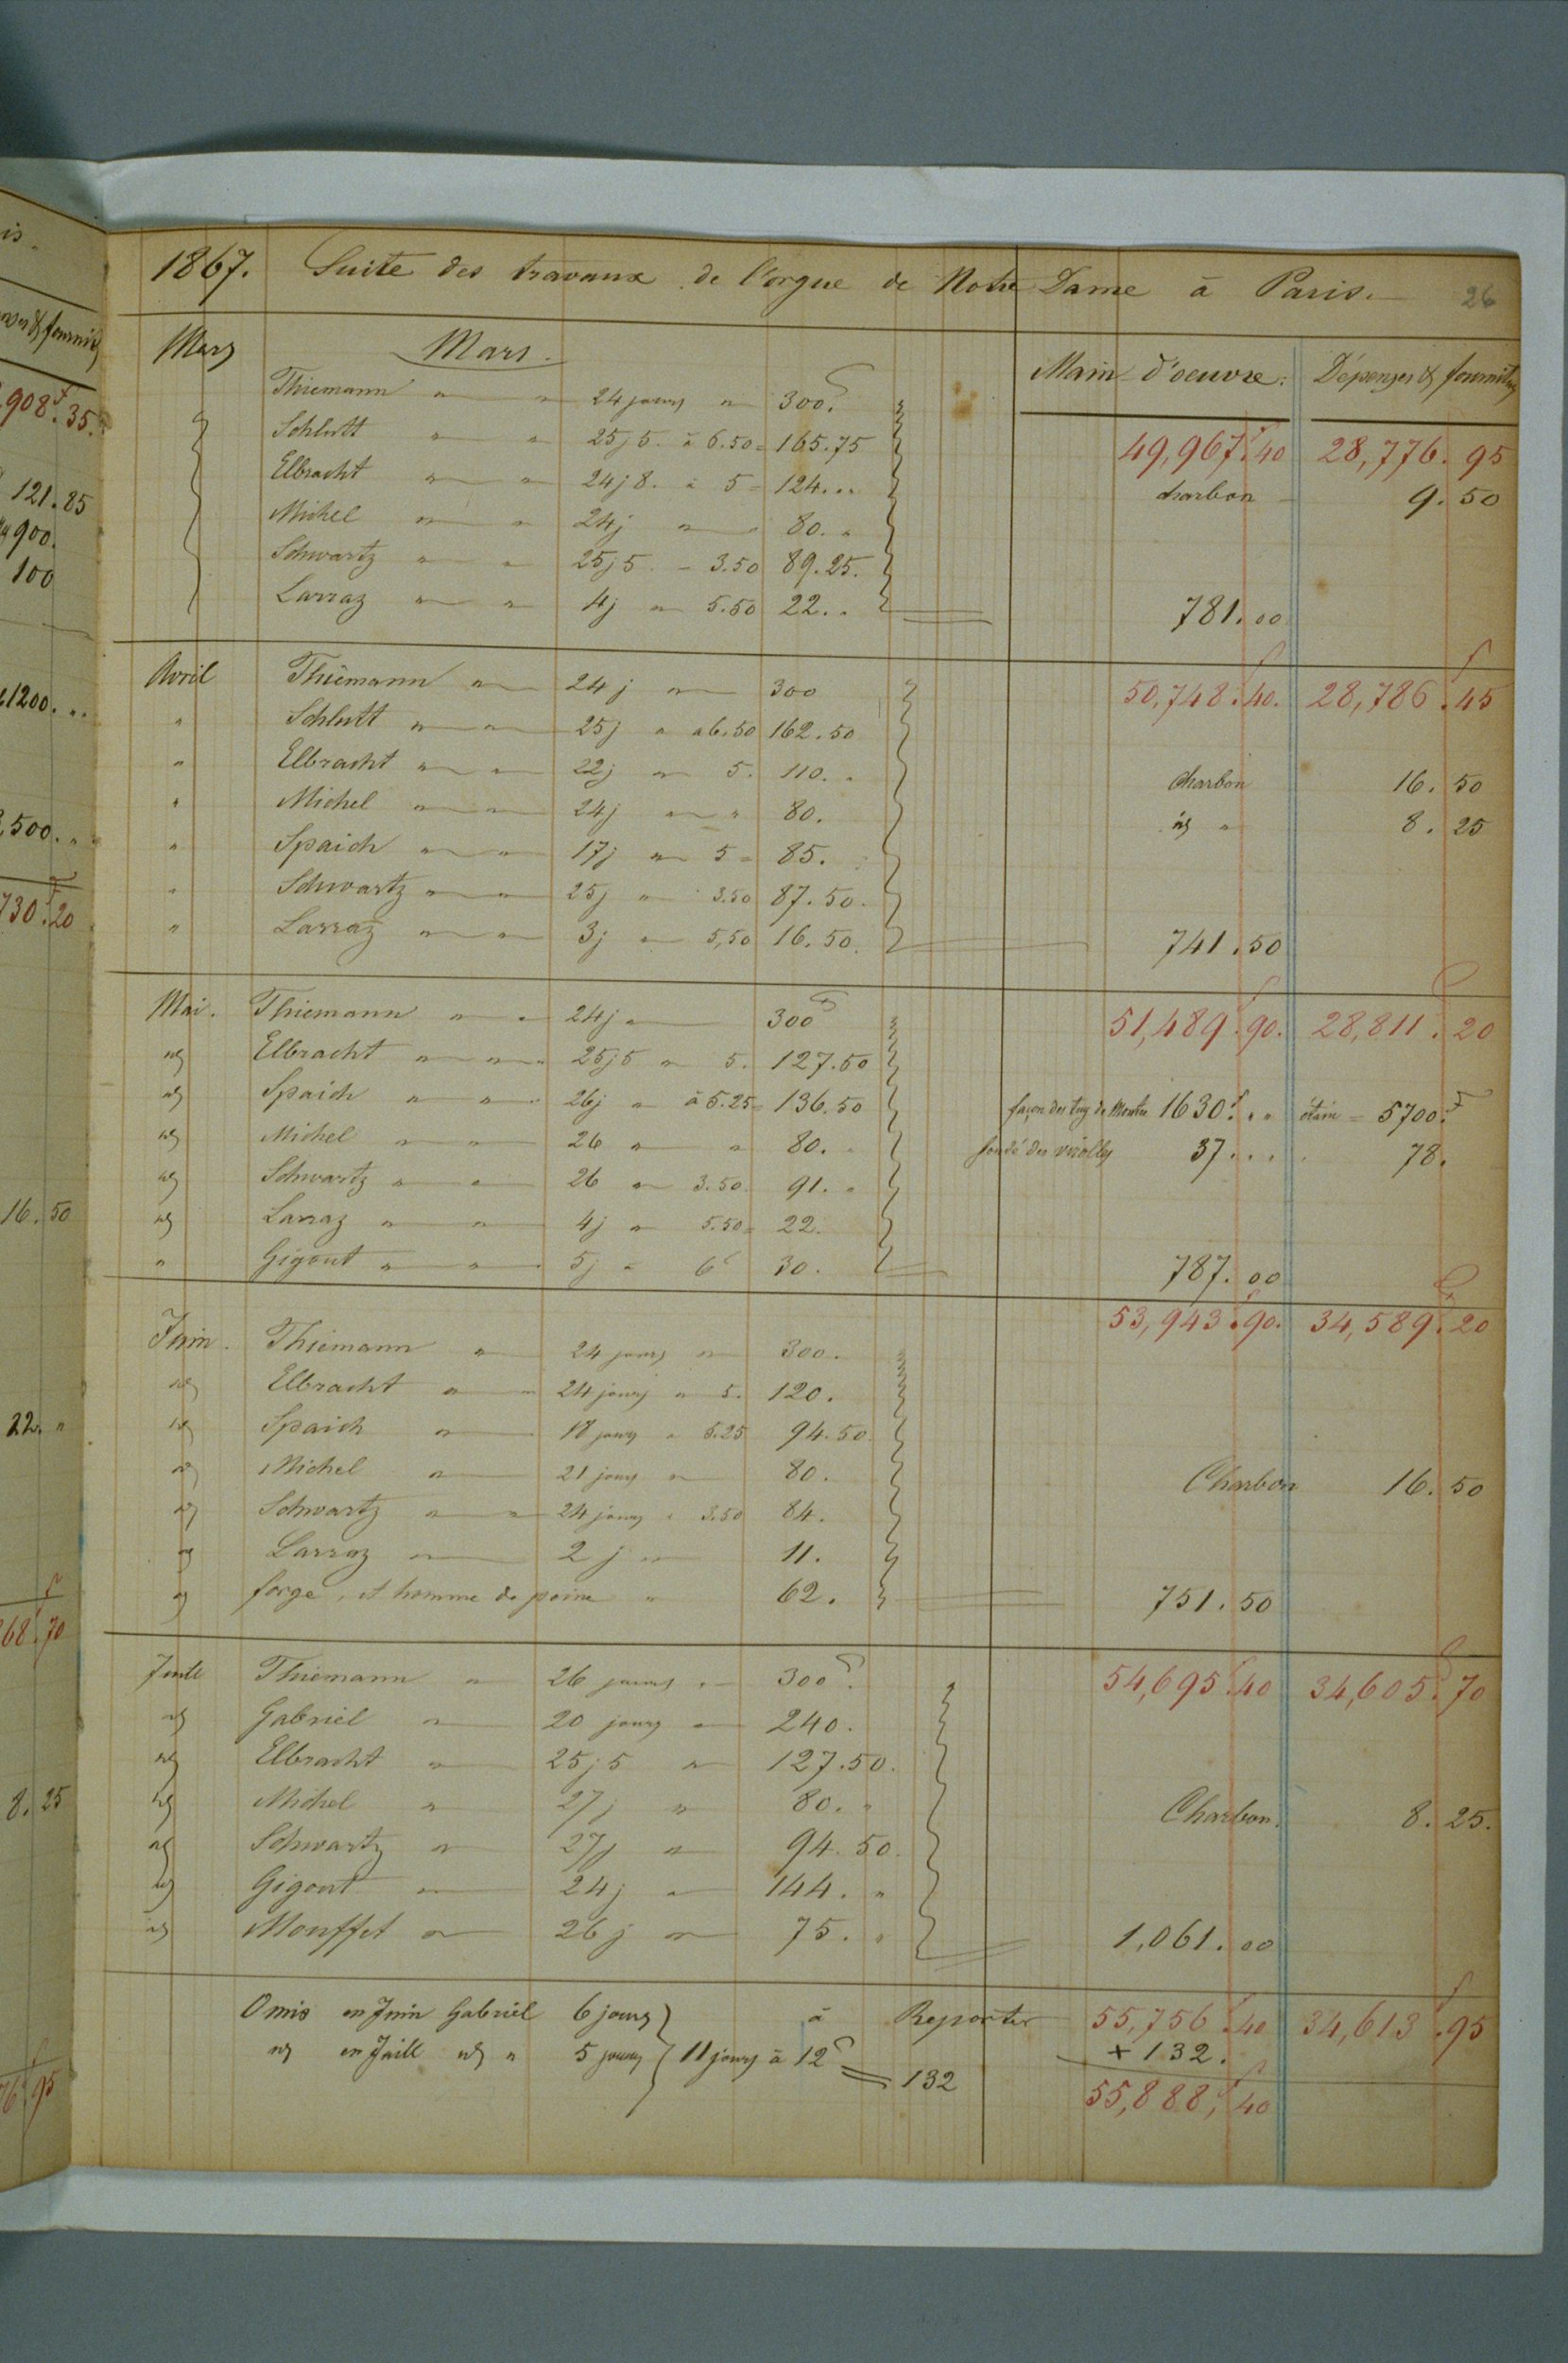 1867. Suite des travaux de l'orgue de Notre Dame à Paris. 26
Mars Mars. Main d'oeuvre: Dépenses &
Thiemann " " 24 jours " 300.f 49,967.f40 28,776.95
Schlutt " " 25j5. à 6.50= 165.75 charbon 9.50
Elbracht " " 24j8. à 5= 124.."
Michel " " 24j " " 80. "
Schwartz " " 25j5. - 3.50 89.25.
Larraz " " 4j " 5.50 22. " 781.00
Avril Thiemann " 24 j " 300 50,748.f40. 28,786.f45
" Schlutt " " 25j " a 6.50 162.50
" Elbracht " " 22j " 5. 110. " Charbon 16.50
" Michel " " 24j " " 80. id " 8.25
" Spaich " " 17j " 5= 85.
" Schwartz " " 25j " 3.50 87.50.
" Larraz " " 3j " 5,50 16.50. 741.50
Mai. Thiemann " " 24j " 300f 51,489.f90. 28,811.f20
id Elbracht " " " 25j5 " 5. 127.50
id Spaich " " 26j " à 5.25= 136.50 façon des de Montre 1630.f.. étain = 5700.f
id Michel " " 26 " " 80. " des 37.... 78.
id Schwartz " " 26 " 3.50. 91. "
id Larraz " " 4j " 5.50= 22.
" Gigout " " 5j " 6f 30. 787.00
Juin. Thiemann " 24 jours " 300. 53,943.f90. 34,589.f20
id Elbracht " " 24 jours " 5. 120.
id Spaich " 18 jours " 5.25 94.50.
id Michel " 21 jours " 80. Charbon 16.50
id Schwartz " " 24 jours " 3.50 84.
id Larraz " 2 j " 11.
id forge, et homme de peine " 62. 751.50
Juill Thiemann " 26 jours " 300f. 54,695.f40 34,605.f70
id Gabriel " 20 jours " 240.
id Elbracht " 25j5 " 127.50.
id Michel " 27j " 80. " Charbon. 8.25.
id Schwartz " 27j " 94.50.
id Gigout " 24j " 144. "
id Mouffet " 26 j " 75. " 1,061.00
Omis en Juin Gabriel 6 jours à Reporter 55,756.f40 34,613.f95
id en Juill id " 5 jours 11 jours à 12f = 132 + 132.
55,888,f40
908.f35.
121.85
900.
100
1200..."
500."
730.f20
16.50
22. "
68.f70
8.25
76.f95